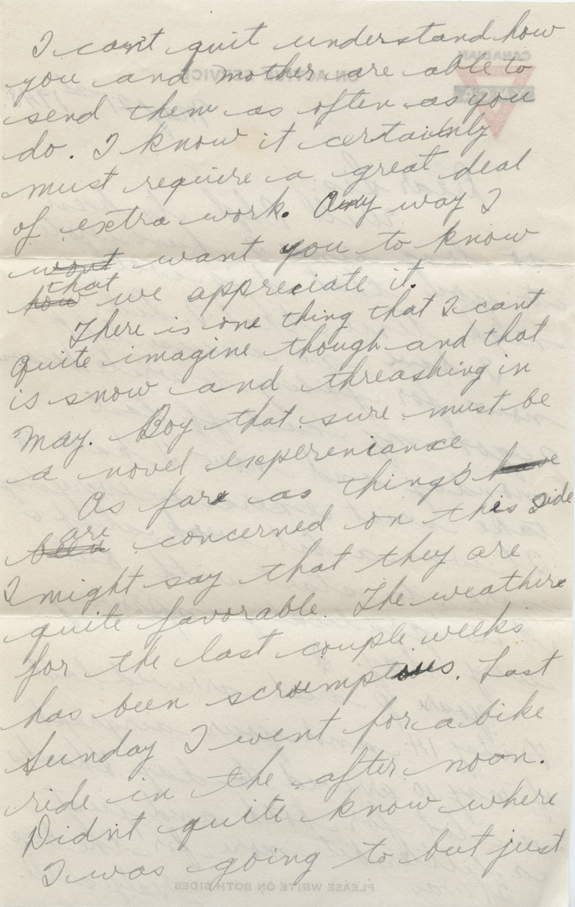 I can't quit understand how
you and mother are able to
send them as often as you
do. I know it certainly
must require a great deal
of extra work. Any way I
wont want you to know
how that we appreciate it.
There is one thing that I cant
quite imagine though and that
is snow and threashing in
May. Boy that sure must be
a novel expereniance
As fare as things have
been are concerned on this side
I might say that they are
quite favorable. The weathere
for the last couple weeks
has been scroumptous. Last
Sunday I went for a bike
ride in the after noon.
Didn't quite know where
I was going to but just
CANADIAN
ON ACTIVE SERVICE
PLEASE WRITE ON BOTH SIDES